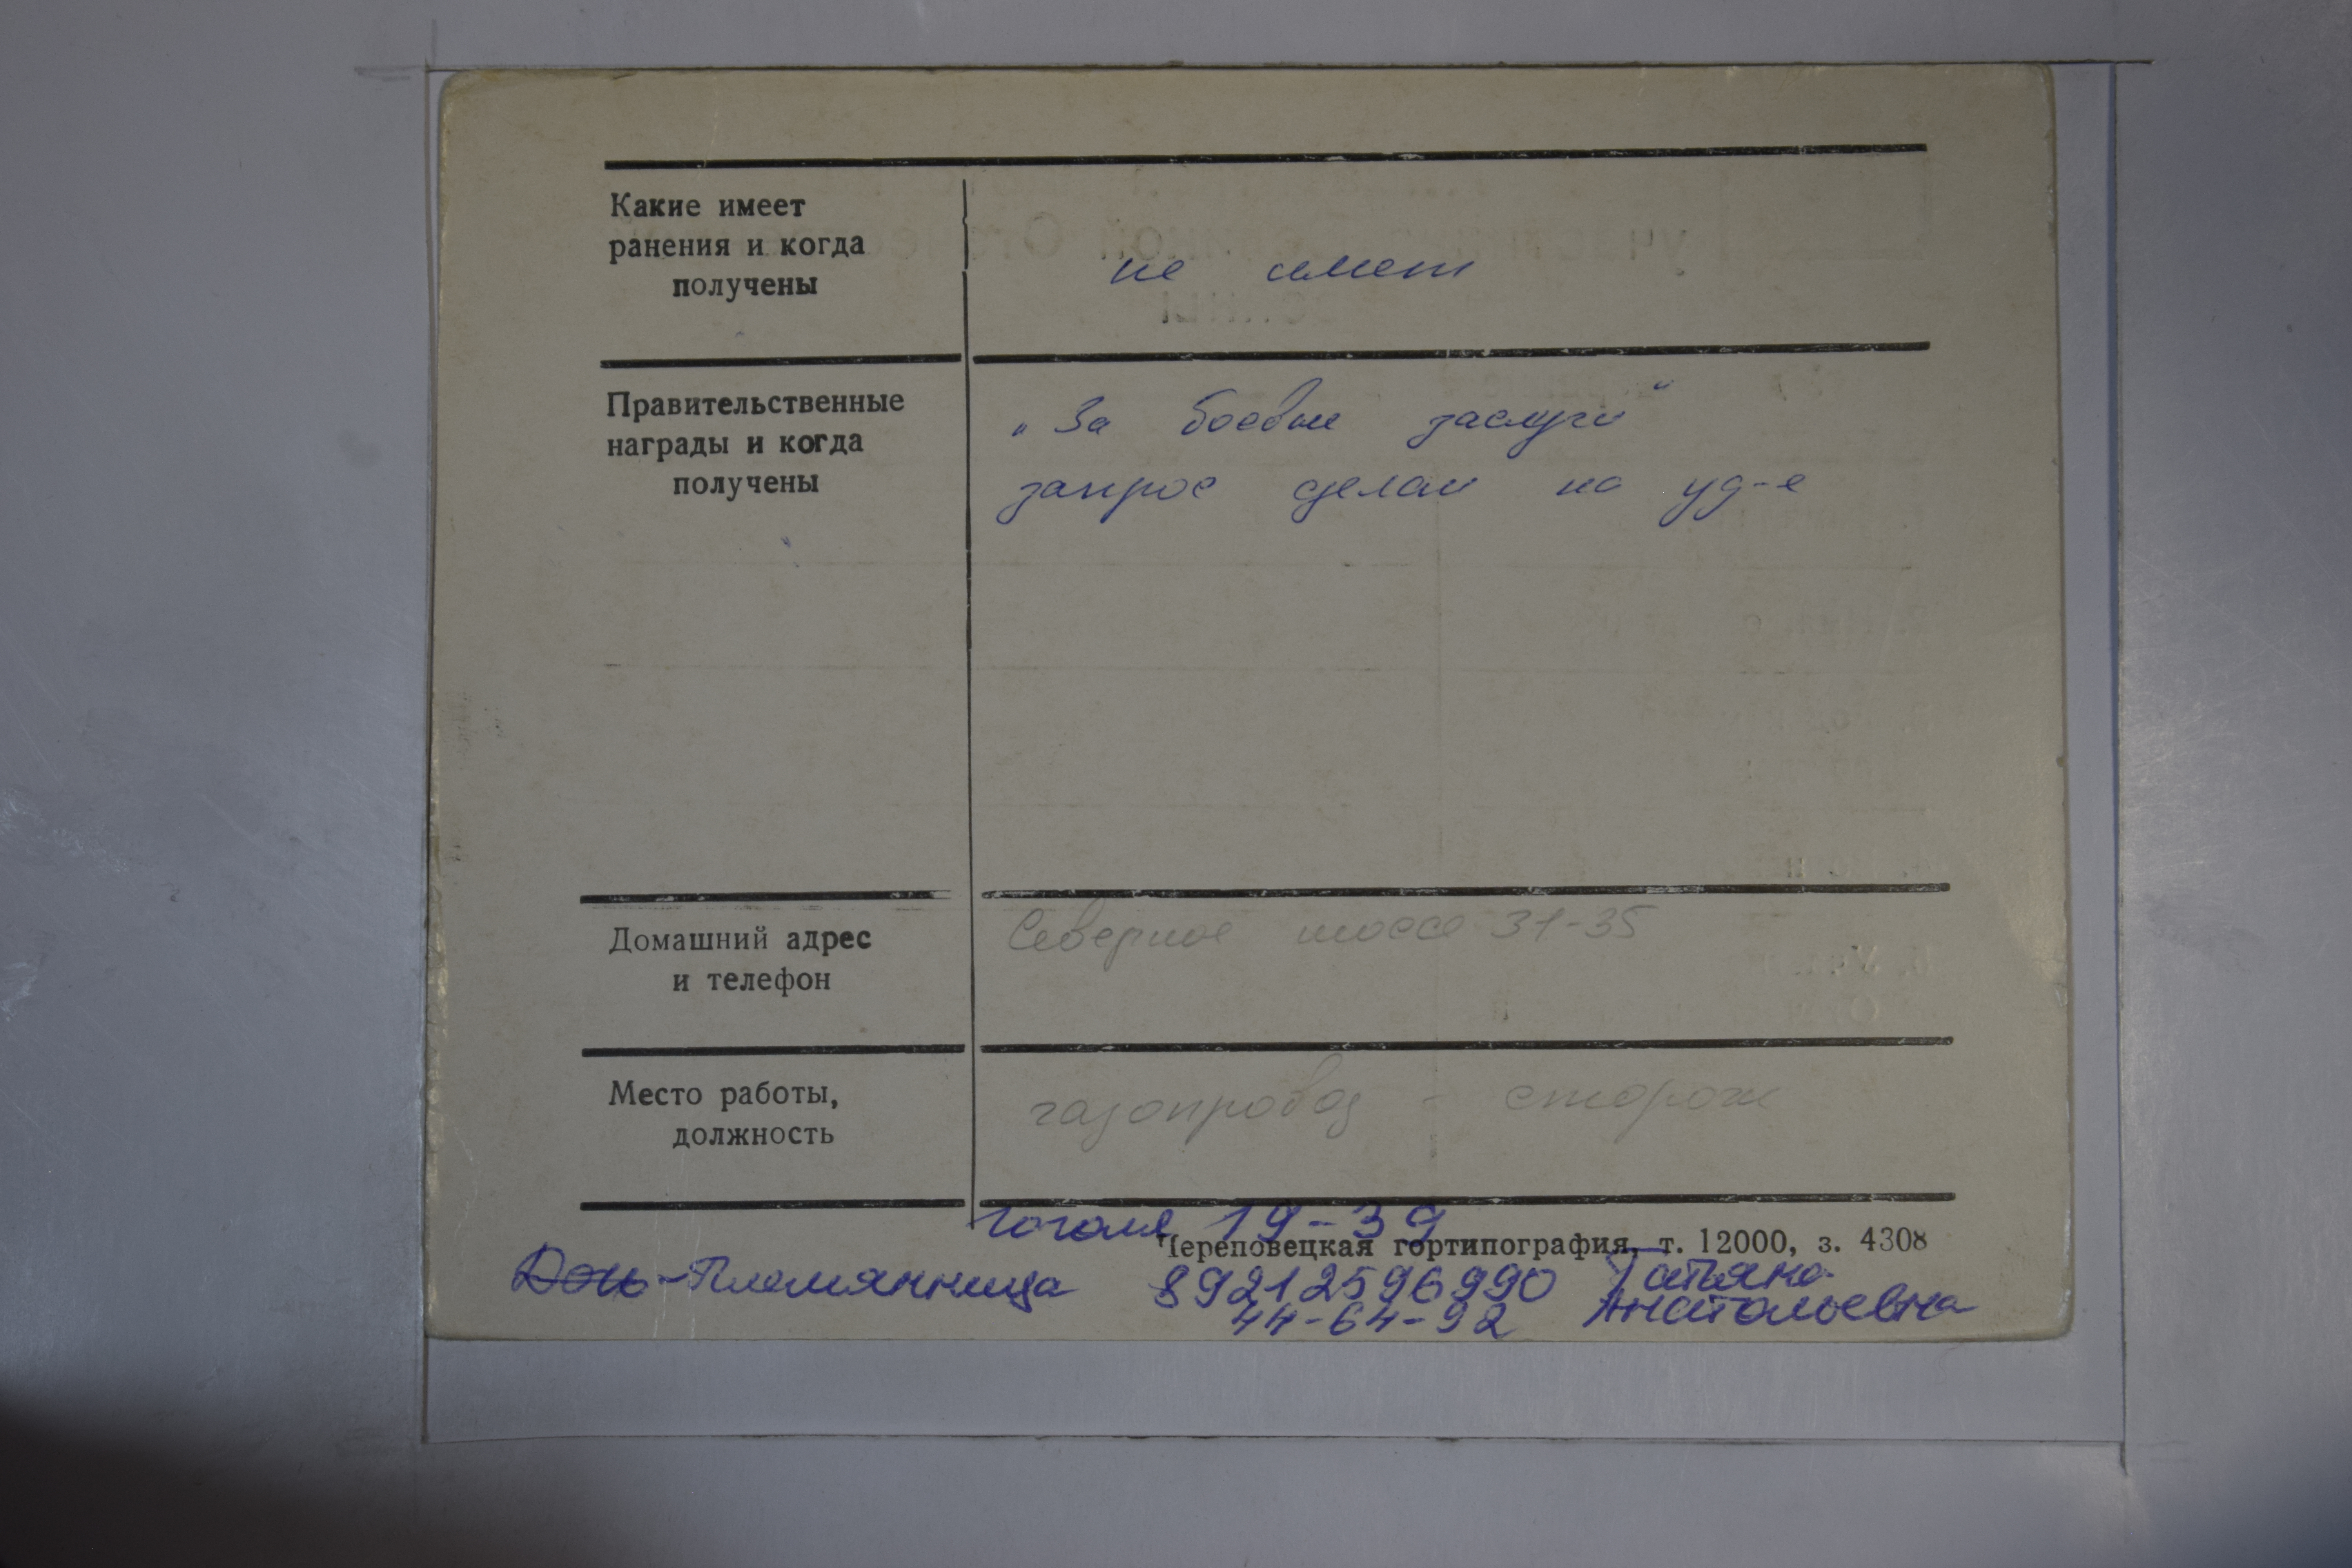 Какие имеет
ранения и когда
получены
не имеет
Правительственные
награды и когда
получены
„За боевые заслуги"
запрос сделан на уд-е
Домашний адрес
и телефон
Северное шоссе 31-35
Место работы,
должность
газопровод - сторож
Гоголя 19-39
Череповецкая гортипография, т. 12000, з. 4308
Дочь-Племянница 89212596990 Татьяна
44-64-92 Анатольевна